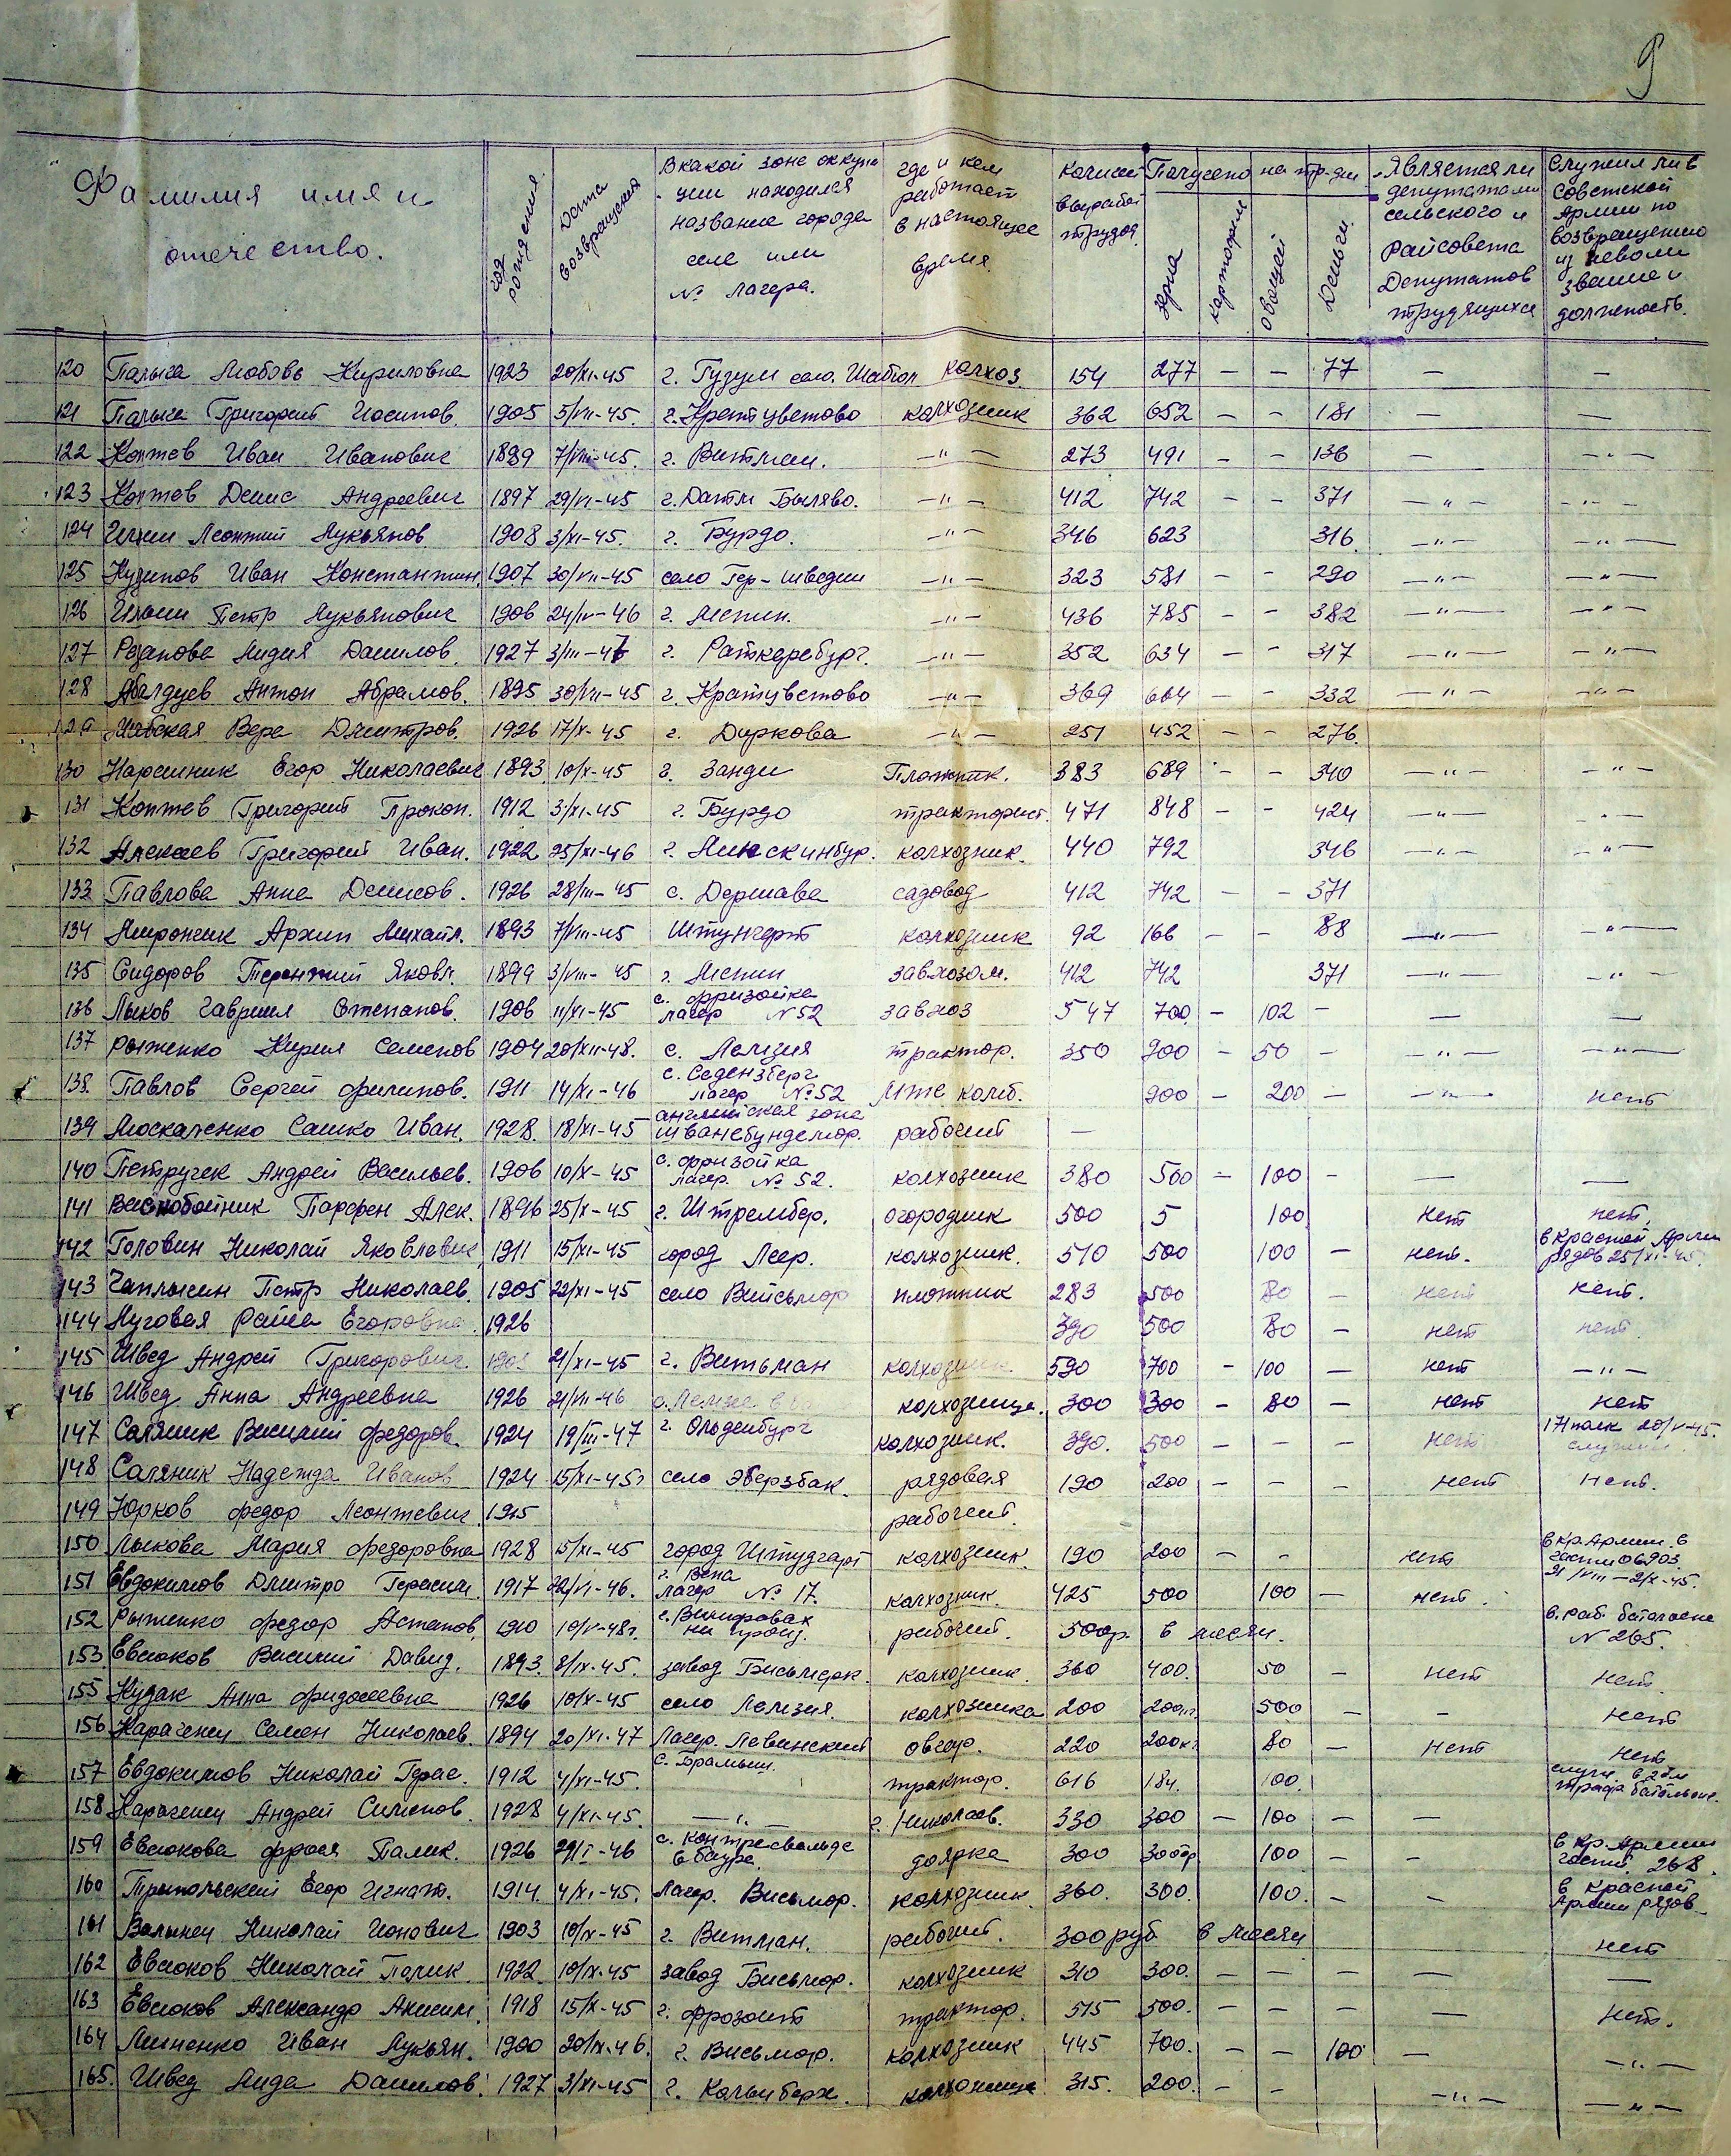 9
Фамилия имя и отчество.
год рождения.
Дата возвращения
В какой зоне оккупации находился название города селе или № лагера.
где и кем работает в настоящее время.
Количест выработ трудод.
Получено на тр-дни
зерна
картофеля
овощей
Деньги.
Является ли депутатами сельского и Райсовета Депутатов трудящихся
Служил ли в Советской Армии по возвращению из неволи звание и должность.
120 Палька Любовь Кириловна 1923 20/XI-45 г. Гузум село. Шабтол колхоз 154 277 - - 77 — —
121 Палька Григорий Иосипов. 1905 5/VII-45. г. Кретцветово колхозник 362 652 - - 181 — —
122 Коптев Иван Иванович 1889 7/VIII-45. г. Витман. -"- 273 491 - - 136 — -"-
123 Коптев Денис Андреевич 1897 29/VI-45 г. Датм Быляво. -"- 412 742 - - 371 -"- -"-
124 Леонтий Лукьянов. 1908 3/XI-45. г. Бурдо. -"- 346 623 316. -"- -"-
125 Кузипов Иван Константин. 1907 30/VII-45 село Гер-Шведии -"- 323 581 - - 290 -"- -"-
126 Петр Лукьянович 1906 24/IV-46 г. Мепин. -"- 436 785 - - 382 -"- -"-
127 Резанова Лидия Данилов. 1927 3/III-47 г. Раткеребург. -"- 352 634 - - 317 -"- -"-
128 Абалдуев Антон Абрамов. 1895 30/VII-45 г. Кратцветово -"- 369 664 - - 332 -"- -"-
129 Вера Дмитров. 1926 17/X-45 г. Диркова -"- 251 452 - - 276.
130 Карасиник Егор Николаевич 1893. 10/X-45 г. Занди Плотник. 383 689 - - 340 -"- -"-
131 Коптев Григорий Прокоп. 1912 3/XI-45 г. Бурдо тракторист. 471 848 - - 424 -"- -"-
132 Алексеев Григорий Иван. 1922 25/XI-46 г. Линскинбур. колхозник. 440 792 346 -"- -"-
133 Павлова Анна Денисов. 1926 28/III-45 с. Держава садовод 412 742 - - 371
134 Мирончик Архип Михайл. 1893 7/VIII-45 Штунгерт колхозник 92 166 - - 88 -"- -"-
135 Сидоров Терентий Яковл. 1899 3/VIII-45 г. Мепин завхозом. 412 742 371 -"- -"-
136 Лыков Гавриил Степанов. 1906 11/XI-45 с. Фризойка лагер N 52 завхоз 547 700. - 102 - — —
137 Рыженко Кирил Семенов 1904 20/XII-48. с. Лемзия трактор. 350 900 - 50 - -"- -"-
138. Павлов Сергей Филипов. 1911 14/XI-46 с. Седензберг лагер № 52 Мте комб. 900 - 200 - -"- нет
139 Москаленко Сашко Иван. 1928. 18/XI-45 английская зона Шванебундемор. рабочий —
140 Петручек Андрей Васильев. 1906 10/X-45 с. Фризойка лагер. № 52. колхозник 380 500 - 100 - — —
141 Воскобойник Парфен Алек. 1896 25/X-45 г. Штрембер. огородник 500 5 100 нет нет.
142 Головин Николай Яковлевич 1911 15/XI-45 город Леер. колхозник. 510 500 100 - нет. в Красной Армии рядов 25/XI-45.
143 Чаплыгин Петр Николаев. 1905 22/XI-45 село Вийсьмор плотник 283 500 80 - нет нет.
144 Луговая Раиса Егоровна. 1926 390 500 80 - нет нет.
145 Швед Андрей Григорович. 21/XI-45 г. Витьман колхозник 590 700 - 100 - нет -"-
146 Швед Анна Андреевна 1926 21/VII-46 колхозница. 300 300 - 80 - нет нет
147 Саляник Василий Федоров. 1924 19/III-47 г. Ольденбург колхозник. 390. 500 - - - нет 171 полк 20/V-45. служил.
148 Саляник Надежда Иванов 1924 15/XI-45г село Эберзбак. рядовая 190 200 - - - нет нет.
149 Юрков Федор Леонтевич. 1915 рабочий.
150 Лыкова Мария Федоровна 1928 15/XI-45 город Штудгарт колхозник. 190 200 - - нет в Кр. Армии. в части 06903. 21/VIII-2/X-45.
151 Евдокимов Дмитро Герасим. 1917 22/VI-46. г. Вена лагер № 17. колхозник. 425 500 100 - нет.
152 Рыженко Федор Астапов. 1910 10/V-48г. рабочий. 500р. в месяц. в. раб. батальоне N 265.
153 Евсюков Василий Давид. 1893. 8/IX-45. завод Бисьмарк колхозник. 360 400. 50 - нет нет.
155 Кудак Анна Фидосеевна 1926 10/X-45 село Лемзия. колхозника 200 200кг. 500 - - нет
156 Карагенец Семен Николаев. 1894 20/XI-47 Лагер. Левинский овощ. 220 200кг. 80 - нет нет
157 Евдокимов Николай Герас. 1912 4/XI-45. с. Брамыш. трактор. 616 184. 100. служ. в 27м штраф батальоне.
158 Карагенец Андрей Симонов. 1928 4/XI-45. -"- г. Николаев. 330 300 - 100 - -
159 Евсюкова Фрося Палик. 1926 29/I-46 с. Контресвальде в баура. доярка 300 300гр. 100 - - в Кр. Армии части. 268.
160 Трипольский Егор Игнат. 1914. 4/XI-45. Лагер. Висьмор. колхозник 360. 300. 100. - - в Красной Армии рядов
161 Волынец Николай Ионович 1903 10/IX-45 г. Витман. рабочий. 300 руб в месяц нет
162 Евсюков Николай Полик. 1922. 10/IX-45 завод Бисьмор. колхозник 310 300. - - - — —
163 Евсюков Александр Анисим. 1918 15/X-45 г. Фрозоит трактор. 515 500. - - - — нет.
164 Линенко Иван Лукьян. 1900 20/IX-46. г. Висьмор. колхозник 445 700. - - 100. — -"-
165. Швед Лида Данилов. 1927 3/XI-45 г. Кольнберх. колхозница 315. 200. - - -"- -"-